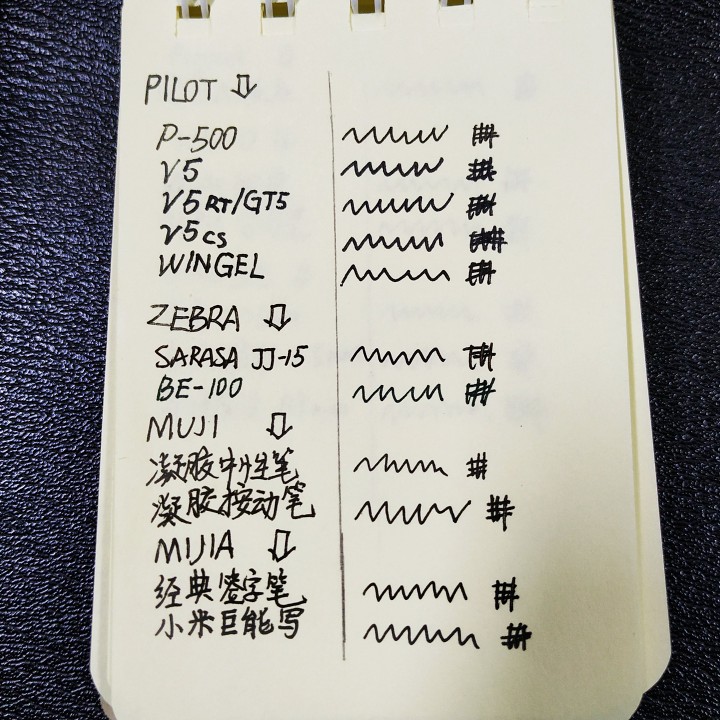 PILOT ⇩
P-500
V5
V5RT/GT5
V5cs
WINGEL
ZEBRA ⇩
SARASA JJ-15
BE-100
MUJI ⇩
凝胶中性笔
凝胶按动笔
MIJIA ⇩
经典签字笔
小米巨能写